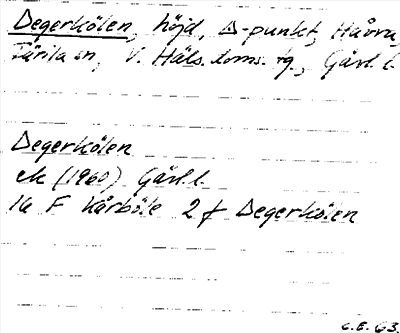 Degerkölen, höjd, Δ-punkt, Hårra,
Färila sn, V. Häls. doms. tg., Gävl. l.
Degerkölen
ek (1960) Gävl. l.
16 F Kårböle 2 f Degerkölen
C.E. 63.